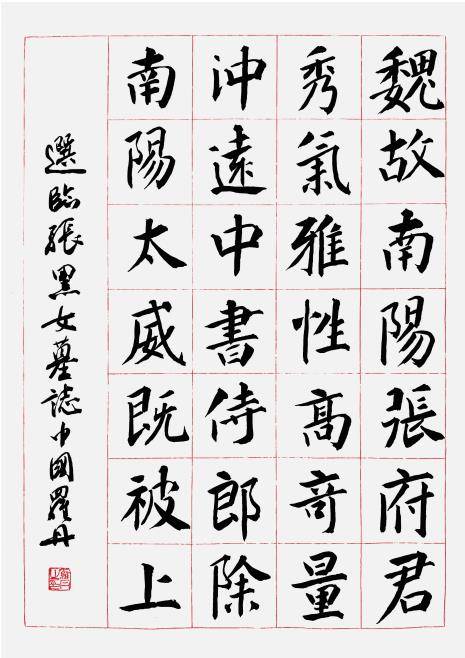 魏故南陽張府君
秀氣雅性高奇量
沖遠中書侍郎除
南陽太威既被上
選臨張黑女墓誌中國羅丹